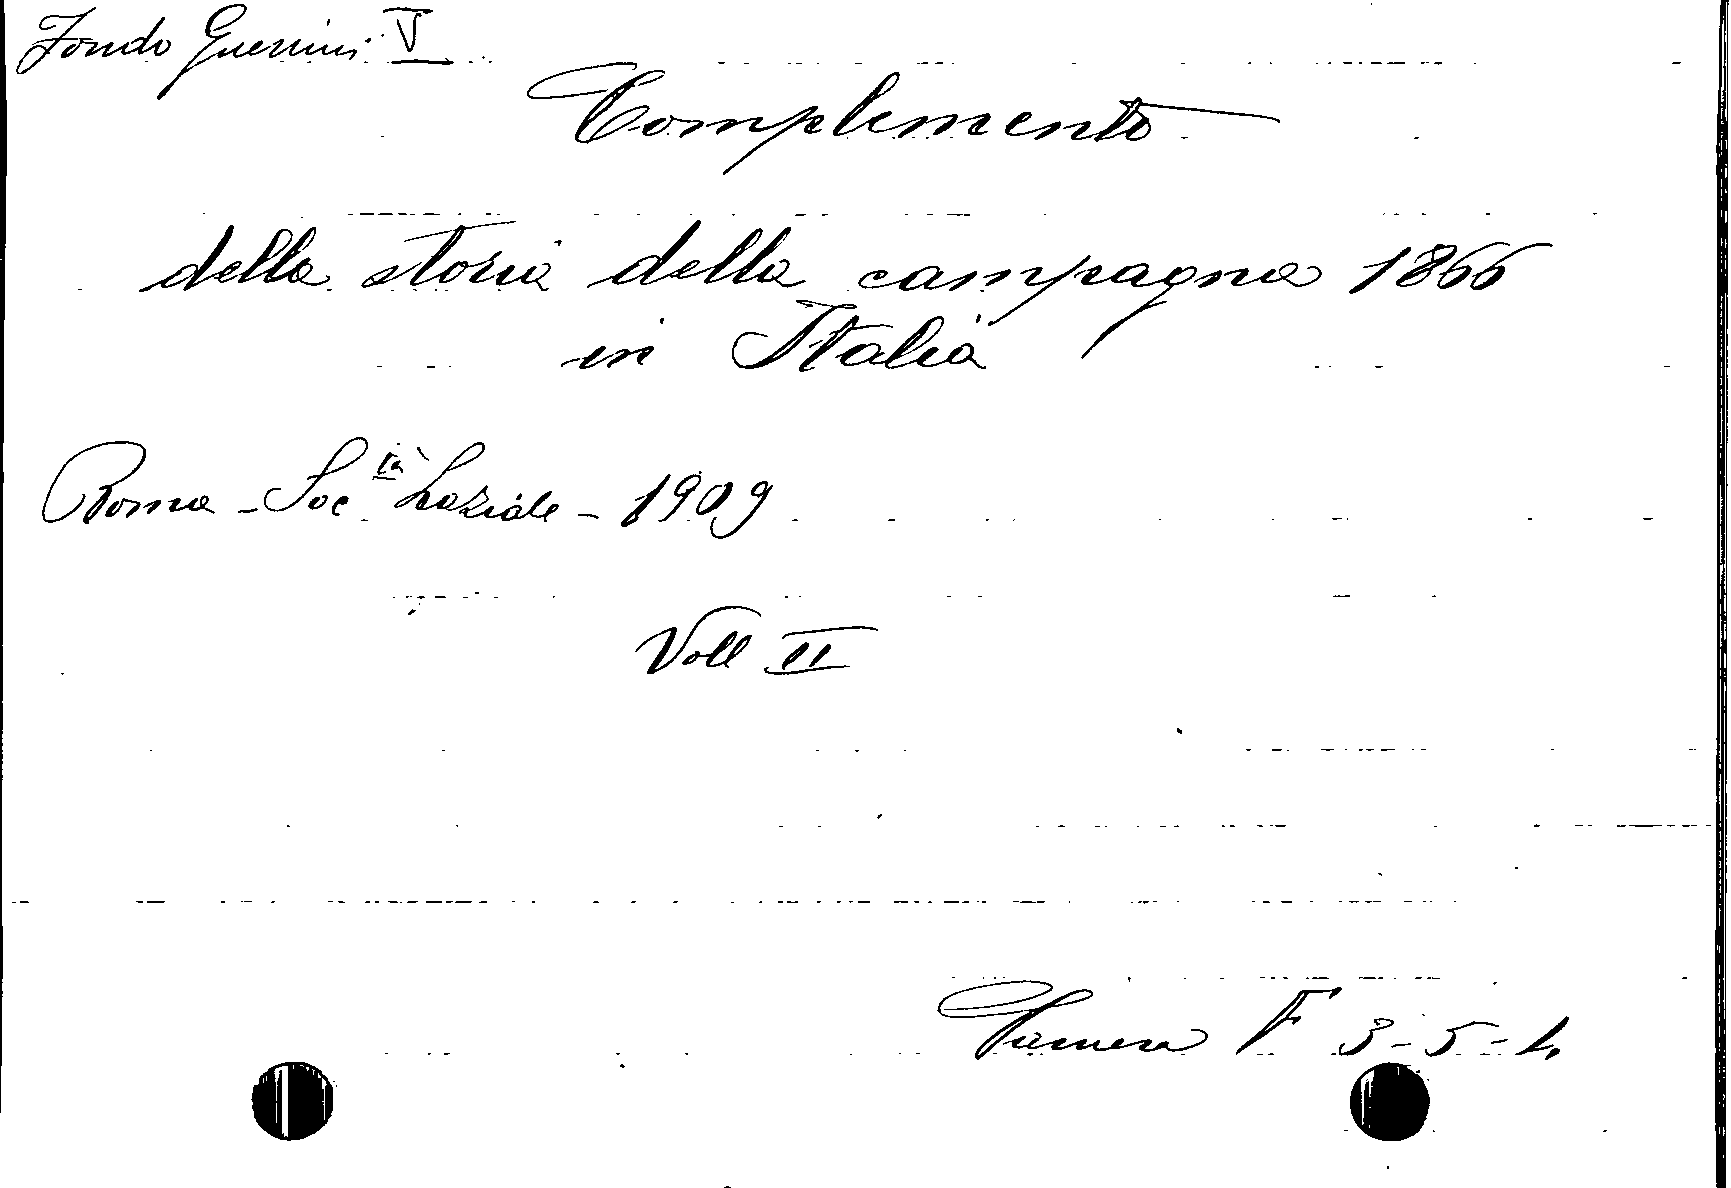 Fondo Guerrini V
Complemento
della storia della campagna 1866
in Italia
Roma - Soc.tà Laziale - 1909
Voll II
Camera F 3-5-4.